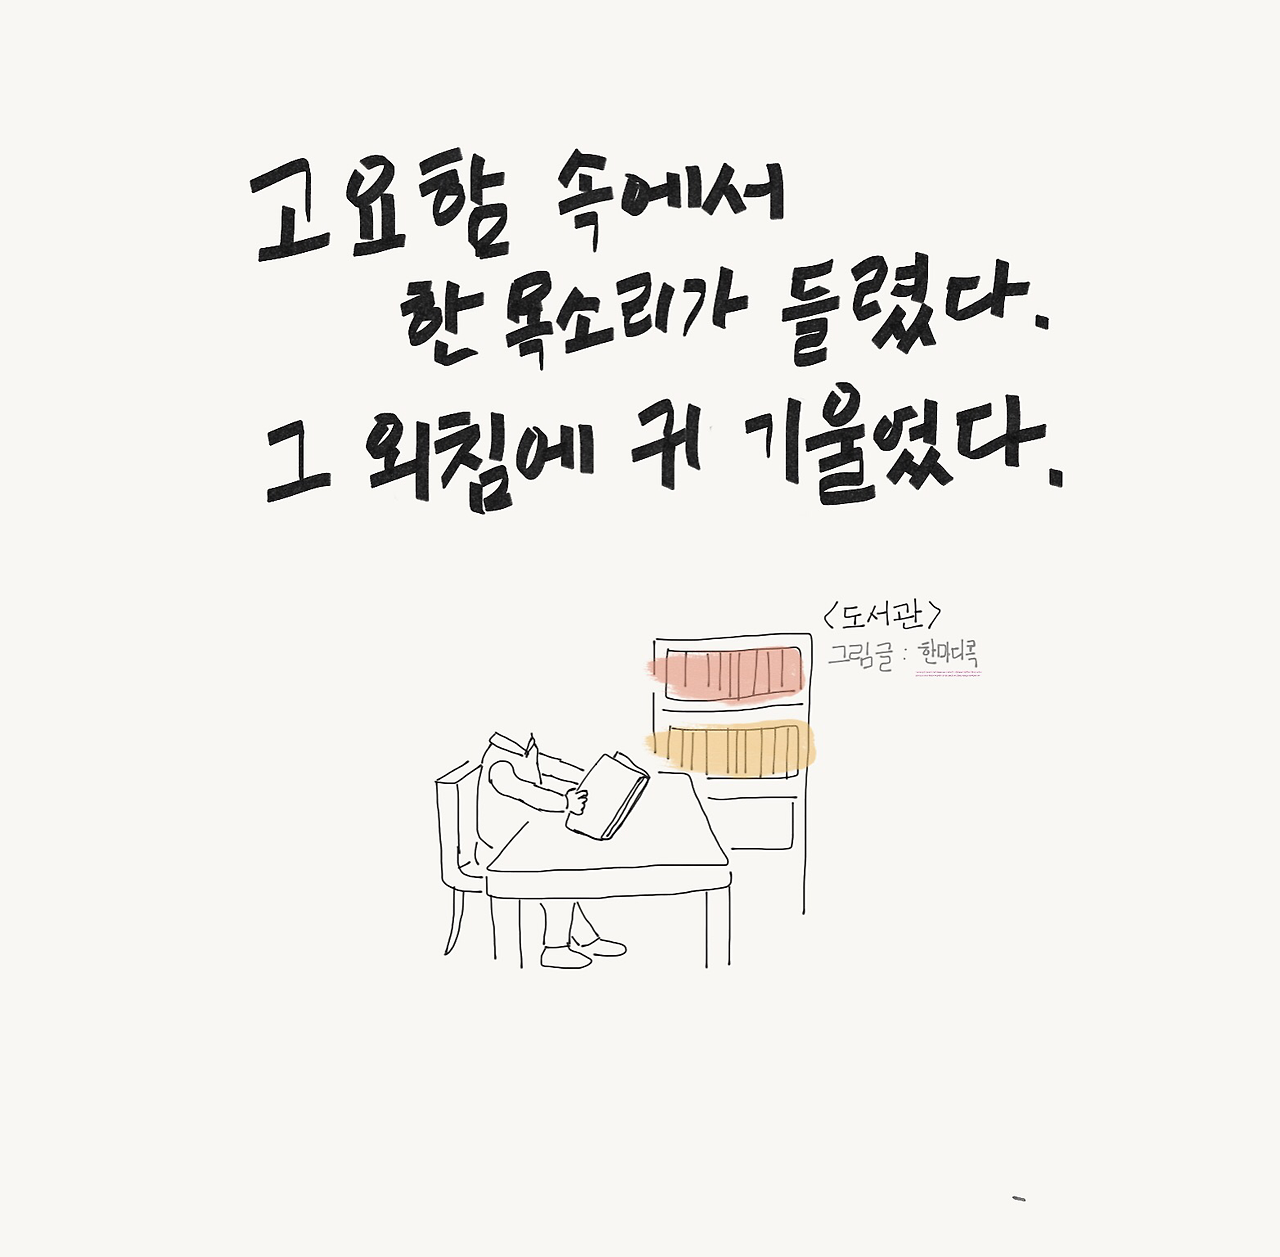 고요함 속에서
한 목소리가 들렸다.
그 외침에 귀 기울였다.
<도서관>
그림글 : 한마디콕